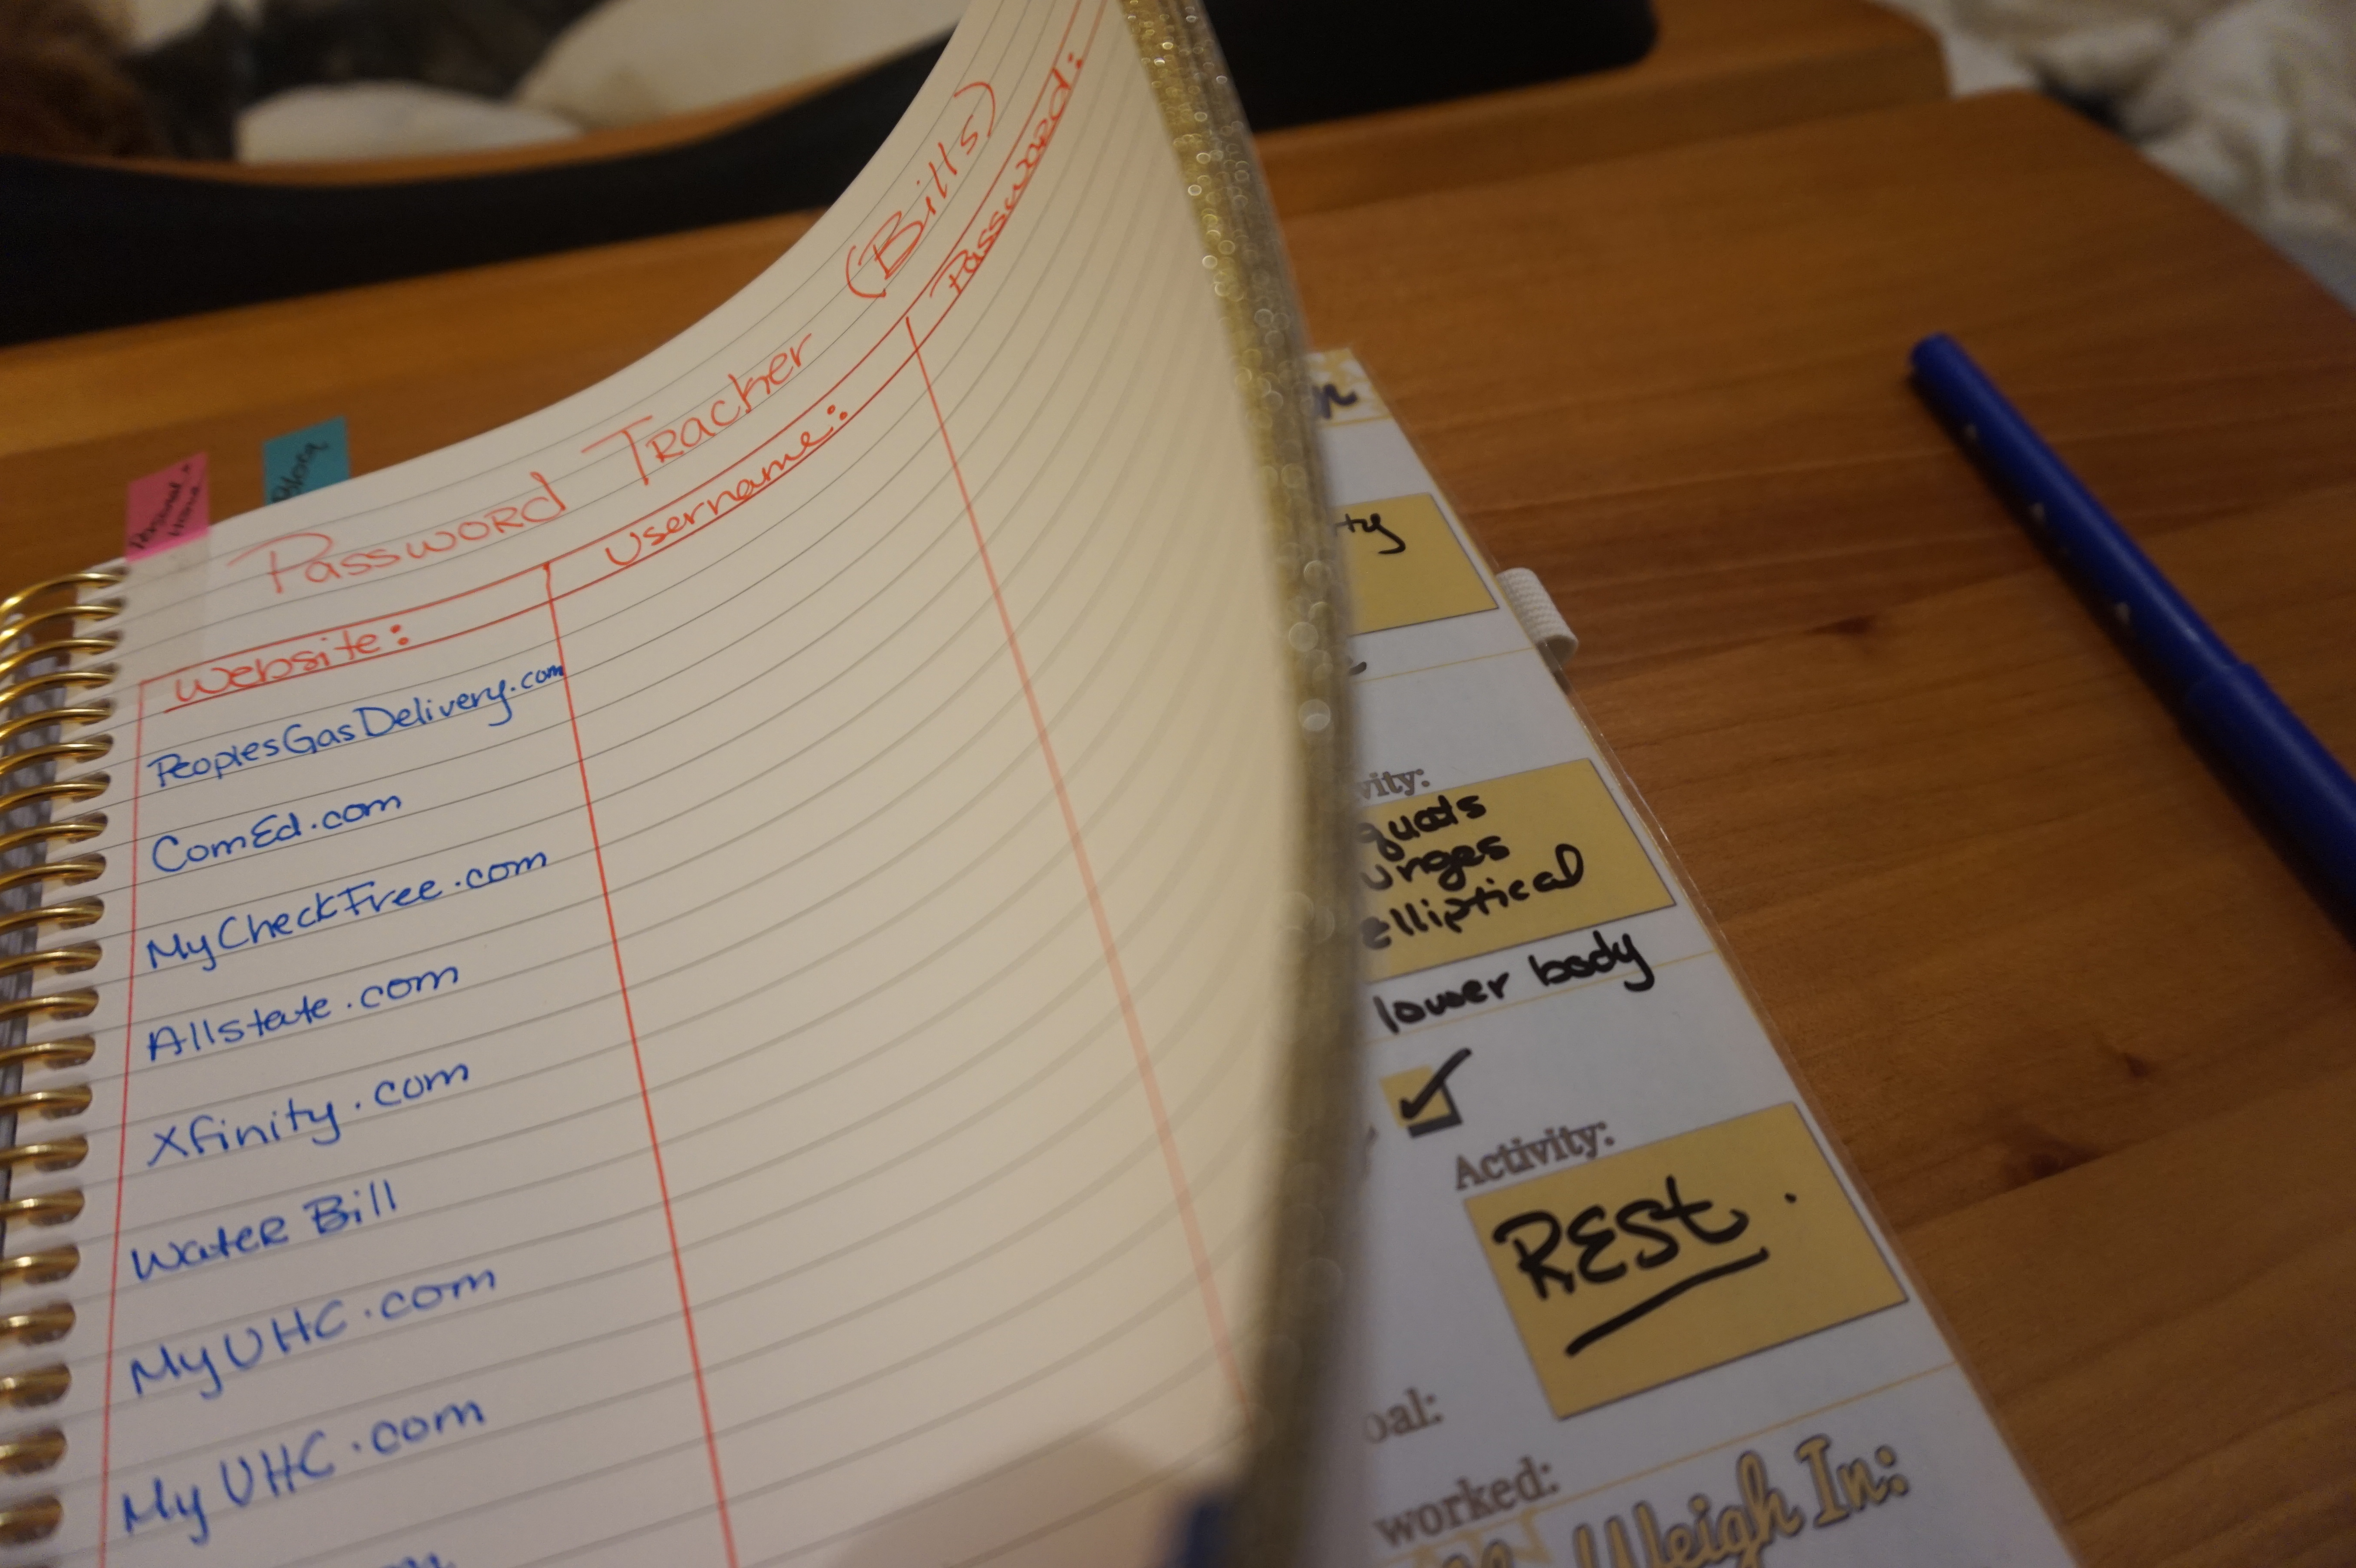 Personal + Home
Password Tracker (Bills)
Website: Username: Password:
PeoplesGasDelivery.com
ComEd.com
MyCheckFree.com
Allstate.com
Xfinity.com
Water Bill
MyUHC.com
MyUHC.com
ty
vity:
quats
unges
elliptical
lower body
Activity:
REST.
oal:
worked:
Weigh In: